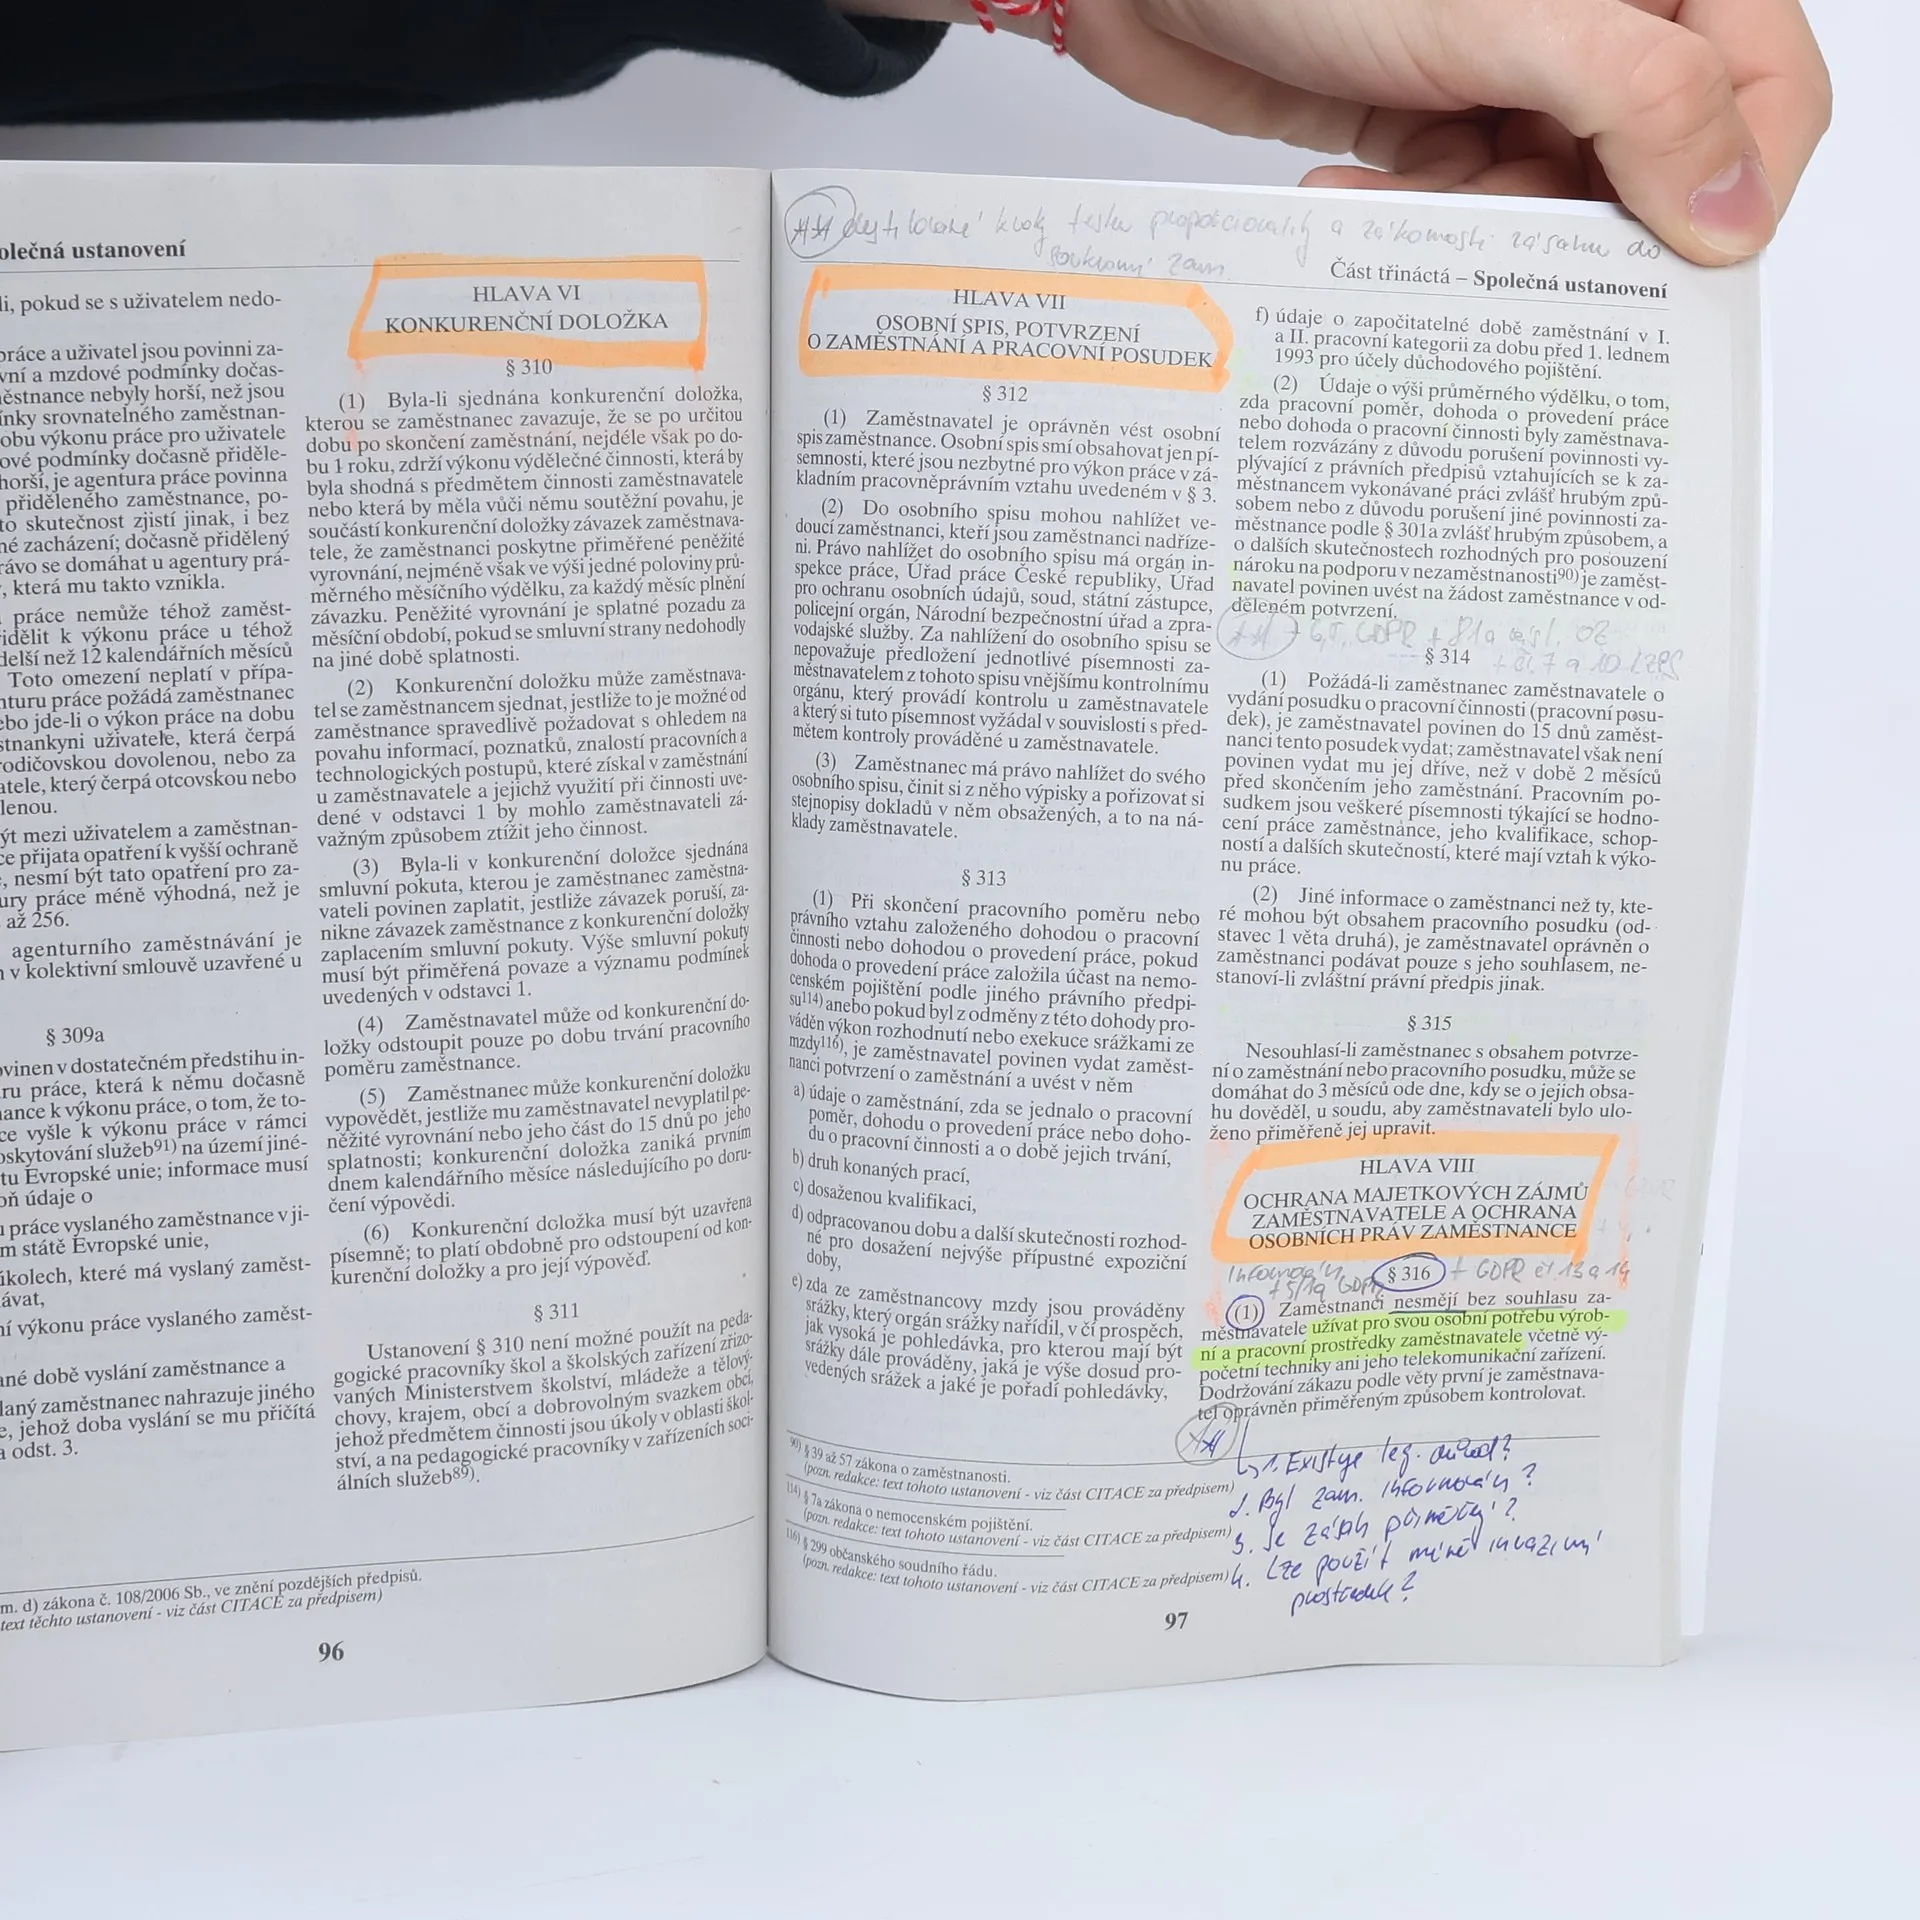 olečná ustanovení
li, pokud se s uživatelem nedo-
práce a uživatel jsou povinni za-
vní a mzdové podmínky dočas-
ěstnance nebyly horší, než jsou
ínky srovnatelného zaměstnan-
obu výkonu práce pro uživatele
ové podmínky dočasně přiděle-
horší, je agentura práce povinna
přiděleného zaměstnance, po-
to skutečnost zjistí jinak, i bez
né zacházení; dočasně přidělený
rávo se domáhat u agentury prá-
, která mu takto vznikla.
práce nemůže téhož zaměst-
idělit k výkonu práce u téhož
delší než 12 kalendářních měsíců
Toto omezení neplatí v přípa-
nturu práce požádá zaměstnanec
ebo jde-li o výkon práce na dobu
stnankyni uživatele, která čerpá
rodičovskou dovolenou, nebo za
atele, který čerpá otcovskou nebo
lenou.
ýt mezi uživatelem a zaměstnan-
ce přijata opatření k vyšší ochraně
, nesmí být tato opatření pro za-
ury práce méně výhodná, než je
až 256.
agenturního zaměstnávání je
n v kolektivní smlouvě uzavřené u
§ 309a
ovinen v dostatečném předstihu in-
ru práce, která k němu dočasně
nance k výkonu práce, o tom, že to-
ce vyšle k výkonu práce v rámci
oskytování služeb91) na území jiné-
tu Evropské unie; informace musí
oň údaje o
u práce vyslaného zaměstnance v ji-
m státě Evropské unie,
úkolech, které má vyslaný zaměst-
ávat,
ní výkonu práce vyslaného zaměst-
ané době vyslání zaměstnance a
laný zaměstnanec nahrazuje jiného
e, jehož doba vyslání se mu přičítá
a odst. 3.
m. d) zákona č. 108/2006 Sb., ve znění pozdějších předpisů.
text těchto ustanovení - viz část CITACE za předpisem)
HLAVA VI
KONKURENČNÍ DOLOŽKA
§ 310
(1) Byla-li sjednána konkurenční doložka,
kterou se zaměstnanec zavazuje, že se po určitou
dobu po skončení zaměstnání, nejdéle však po do-
bu 1 roku, zdrží výkonu výdělečné činnosti, která by
byla shodná s předmětem činnosti zaměstnavatele
nebo která by měla vůči němu soutěžní povahu, je
součástí konkurenční doložky závazek zaměstnava-
tele, že zaměstnanci poskytne přiměřené peněžité
vyrovnání, nejméně však ve výši jedné poloviny prů-
měrného měsíčního výdělku, za každý měsíc plnění
závazku. Peněžité vyrovnání je splatné pozadu za
měsíční období, pokud se smluvní strany nedohodly
na jiné době splatnosti.
(2) Konkurenční doložku může zaměstnava-
tel se zaměstnancem sjednat, jestliže to je možné od
zaměstnance spravedlivě požadovat s ohledem na
povahu informací, poznatků, znalostí pracovních a
technologických postupů, které získal v zaměstnání
u zaměstnavatele a jejichž využití při činnosti uve-
dené v odstavci 1 by mohlo zaměstnavateli zá-
važným způsobem ztížit jeho činnost.
(3) Byla-li v konkurenční doložce sjednána
smluvní pokuta, kterou je zaměstnanec zaměstna-
vateli povinen zaplatit, jestliže závazek poruší, za-
nikne závazek zaměstnance z konkurenční doložky
zaplacením smluvní pokuty. Výše smluvní pokuty
musí být přiměřená povaze a významu podmínek
uvedených v odstavci 1.
(4) Zaměstnavatel může od konkurenční do-
ložky odstoupit pouze po dobu trvání pracovního
poměru zaměstnance.
(5) Zaměstnanec může konkurenční doložku
vypovědět, jestliže mu zaměstnavatel nevyplatil pe-
něžité vyrovnání nebo jeho část do 15 dnů po jeho
splatnosti; konkurenční doložka zaniká prvním
dnem kalendářního měsíce následujícího po doru-
čení výpovědi.
(6) Konkurenční doložka musí být uzavřena
písemně; to platí obdobně pro odstoupení od kon-
kurenční doložky a pro její výpověď.
§ 311
Ustanovení § 310 není možné použít na peda-
gogické pracovníky škol a školských zařízení zřizo-
vaných Ministerstvem školství, mládeže a tělový-
chovy, krajem, obcí a dobrovolným svazkem obcí,
jehož předmětem činnosti jsou úkoly v oblasti škol-
ství, a na pedagogické pracovníky v zařízeních soci-
álních služeb89).
96
kroky testu proporcionality a zákonnosti zásahu do
soukromí zam.
Část třináctá – Společná ustanovení
HLAVA VII
OSOBNÍ SPIS, POTVRZENÍ
O ZAMĚSTNÁNÍ A PRACOVNÍ POSUDEK
§ 312
(1) Zaměstnavatel je oprávněn vést osobní
spis zaměstnance. Osobní spis smí obsahovat jen pí-
semnosti, které jsou nezbytné pro výkon práce v zá-
kladním pracovněprávním vztahu uvedeném v § 3.
(2) Do osobního spisu mohou nahlížet ve-
doucí zaměstnanci, kteří jsou zaměstnanci nadříze-
ni. Právo nahlížet do osobního spisu má orgán in-
spekce práce, Úřad práce České republiky, Úřad
pro ochranu osobních údajů, soud, státní zástupce,
policejní orgán, Národní bezpečnostní úřad a zpra-
vodajské služby. Za nahlížení do osobního spisu se
nepovažuje předložení jednotlivé písemnosti za-
městnavatelem z tohoto spisu vnějšímu kontrolnímu
orgánu, který provádí kontrolu u zaměstnavatele
a který si tuto písemnost vyžádal v souvislosti s před-
mětem kontroly prováděné u zaměstnavatele.
(3) Zaměstnanec má právo nahlížet do svého
osobního spisu, činit si z něho výpisky a pořizovat si
stejnopisy dokladů v něm obsažených, a to na ná-
klady zaměstnavatele.
§ 313
(1) Při skončení pracovního poměru nebo
právního vztahu založeného dohodou o pracovní
činnosti nebo dohodou o provedení práce, pokud
dohoda o provedení práce založila účast na nemo-
cenském pojištění podle jiného právního předpi-
su114) anebo pokud byl z odměny z této dohody pro-
váděn výkon rozhodnutí nebo exekuce srážkami ze
mzdy116), je zaměstnavatel povinen vydat zaměst-
nanci potvrzení o zaměstnání a uvést v něm
a) údaje o zaměstnání, zda se jednalo o pracovní
poměr, dohodu o provedení práce nebo doho-
du o pracovní činnosti a o době jejich trvání,
b) druh konaných prací,
c) dosaženou kvalifikaci,
d) odpracovanou dobu a další skutečnosti rozhod-
né pro dosažení nejvýše přípustné expoziční
doby,
e) zda ze zaměstnancovy mzdy jsou prováděny
srážky, který orgán srážky nařídil, v čí prospěch,
jak vysoká je pohledávka, pro kterou mají být
srážky dále prováděny, jaká je výše dosud pro-
vedených srážek a jaké je pořadí pohledávky,
90) § 39 až 57 zákona o zaměstnanosti.
(pozn. redakce: text tohoto ustanovení - viz část CITACE za předpisem)
114) § 7a zákona o nemocenském pojištění.
(pozn. redakce: text tohoto ustanovení - viz část CITACE za předpisem)
116) § 299 občanského soudního řádu.
(pozn. redakce: text tohoto ustanovení - viz část CITACE za předpisem)
f) údaje o započitatelné době zaměstnání v I.
a II. pracovní kategorii za dobu před 1. lednem
1993 pro účely důchodového pojištění.
(2) Údaje o výši průměrného výdělku, o tom,
zda pracovní poměr, dohoda o provedení práce
nebo dohoda o pracovní činnosti byly zaměstnava-
telem rozvázány z důvodu porušení povinnosti vy-
plývající z právních předpisů vztahujících se k za-
městnancem vykonávané práci zvlášť hrubým způ-
sobem nebo z důvodu porušení jiné povinnosti za-
městnance podle § 301a zvlášť hrubým způsobem, a
o dalších skutečnostech rozhodných pro posouzení
nároku na podporu v nezaměstnanosti90) je zaměst-
navatel povinen uvést na žádost zaměstnance v od-
děleném potvrzení.
GDPR + 81a OZ
§ 314
+ čl. 7 a 10 LZPS
(1) Požádá-li zaměstnanec zaměstnavatele o
vydání posudku o pracovní činnosti (pracovní posu-
dek), je zaměstnavatel povinen do 15 dnů zaměst-
nanci tento posudek vydat; zaměstnavatel však není
povinen vydat mu jej dříve, než v době 2 měsíců
před skončením jeho zaměstnání. Pracovním po-
sudkem jsou veškeré písemnosti týkající se hodno-
cení práce zaměstnance, jeho kvalifikace, schop-
ností a dalších skutečností, které mají vztah k výko-
nu práce.
(2) Jiné informace o zaměstnanci než ty, kte-
ré mohou být obsahem pracovního posudku (od-
stavec 1 věta druhá), je zaměstnavatel oprávněn o
zaměstnanci podávat pouze s jeho souhlasem, ne-
stanoví-li zvláštní právní předpis jinak.
§ 315
Nesouhlasí-li zaměstnanec s obsahem potvrze-
ní o zaměstnání nebo pracovního posudku, může se
domáhat do 3 měsíců ode dne, kdy se o jejich obsa-
hu dověděl, u soudu, aby zaměstnavateli bylo ulo-
ženo přiměřeně jej upravit.
HLAVA VIII
OCHRANA MAJETKOVÝCH ZÁJMŮ
ZAMĚSTNAVATELE A OCHRANA
OSOBNÍCH PRÁV ZAMĚSTNANCE
§ 316 + GDPR čl. 13 a 14
(1) Zaměstnanci nesmějí bez souhlasu za-
městnavatele užívat pro svou osobní potřebu výrob-
ní a pracovní prostředky zaměstnavatele včetně vý-
početní techniky ani jeho telekomunikační zařízení.
Dodržování zákazu podle věty první je zaměstnava-
tel oprávněn přiměřeným způsobem kontrolovat.
1. Existuje leg. důvod?
2. Byl zam. informován?
3. Je zásah přiměřený?
4. Lze použít méně invazivní
prostředek?
97